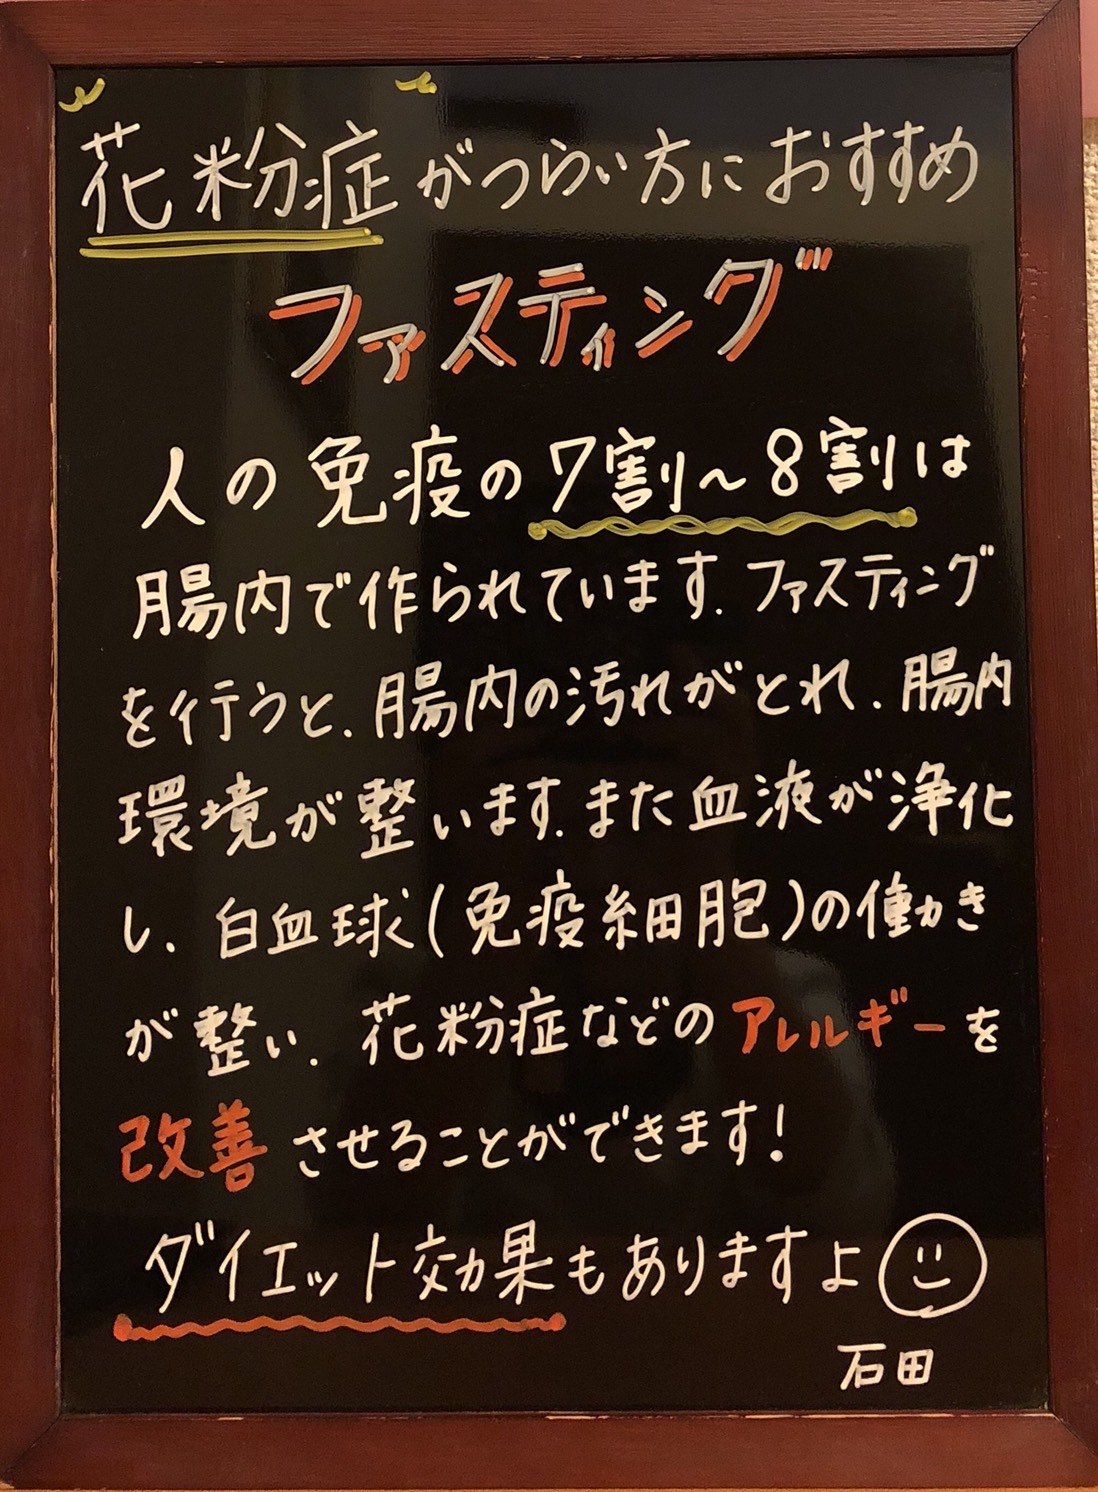 花粉症がつらい方におすすめ
ファスティング
人の免疫の7割~8割は
腸内で作られています。ファスティング
を行うと、腸内の汚れがとれ、腸内
環境が整います。また血液が浄化
し、白血球(免疫細胞)の働き
が整い、花粉症などのアレルギーを
改善させることができます!
ダイエット効果もありますよ
石田